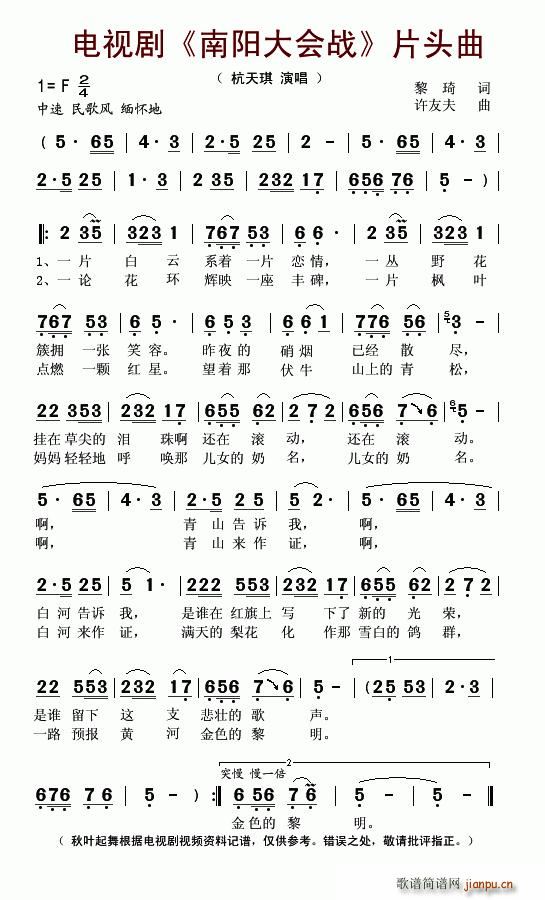 电视剧《南阳大会战》片头曲
（ 杭天琪 演唱 ）
1=F 2/4
黎 琦 词
中速 民歌风 缅怀地
许友夫 曲
( 5· 65 | 4· 3 | 2·5 25 | 2 - | 5· 65 | 4· 3 |
2·5 25 | 1· 2 | 35 21 | 232 17 | 656 76 | 5 - ) |
‖: 2 35 | 323 1 | 767 53 | 6 6· | 2 35 | 323 1 |
1、一 片 白 云 系着 一片 恋 情， 一 丛 野 花
2、一 论 花 环 辉映 一座 丰 碑， 一 片 枫 叶
767 53 | 2 3· | 6 53 | 66 1 | 776 56 | 5 3 - |
簇拥 一张 笑 容。 昨 夜的 硝 烟 已经 散 尽，
点燃 一颗 红 星。 望 着那 伏 牛 山上的 青 松，
22 353 | 232 17 | 655 62 | 2 7 2 | 656 7 6 | 6 5 - |
挂在 草尖的 泪 珠啊 还在 滚 动， 还在 滚 动。
妈妈 轻轻地 呼 唤那 儿女的 奶 名， 儿女的 奶 名。
5· 65 | 4· 3 | 2·5 25 | 2 - | 5· 65 | 4· 3 |
啊， 青 山告诉 我， 啊，
啊， 青 山来作 证， 啊，
2·5 25 | 5 1· | 222 553 | 232 17 | 655 62 | 2 7 2 |
白 河告诉 我， 是谁在 红旗上 写 下了 新的 光 荣，
白 河来作 证， 满天的 梨花 化 作那 雪白的 鸽 群，
22 553 | 232 17 | 656 7 6 | 5 - | (25 53 | 2· 3 |
1
是谁 留下 这 支 悲壮的 歌 声。
一路 预报 黄 河 金色的 黎 明。
2
突慢 慢一倍
676 76 | 5 - ) :‖ 6 56 7 6 | 5 - | 5 - ‖
金色的 黎 明。
（ 秋叶起舞根据电视剧视频资料记谱，仅供参考。错误之处，敬请批评指正。）
歌谱简谱网
jianpu.cn